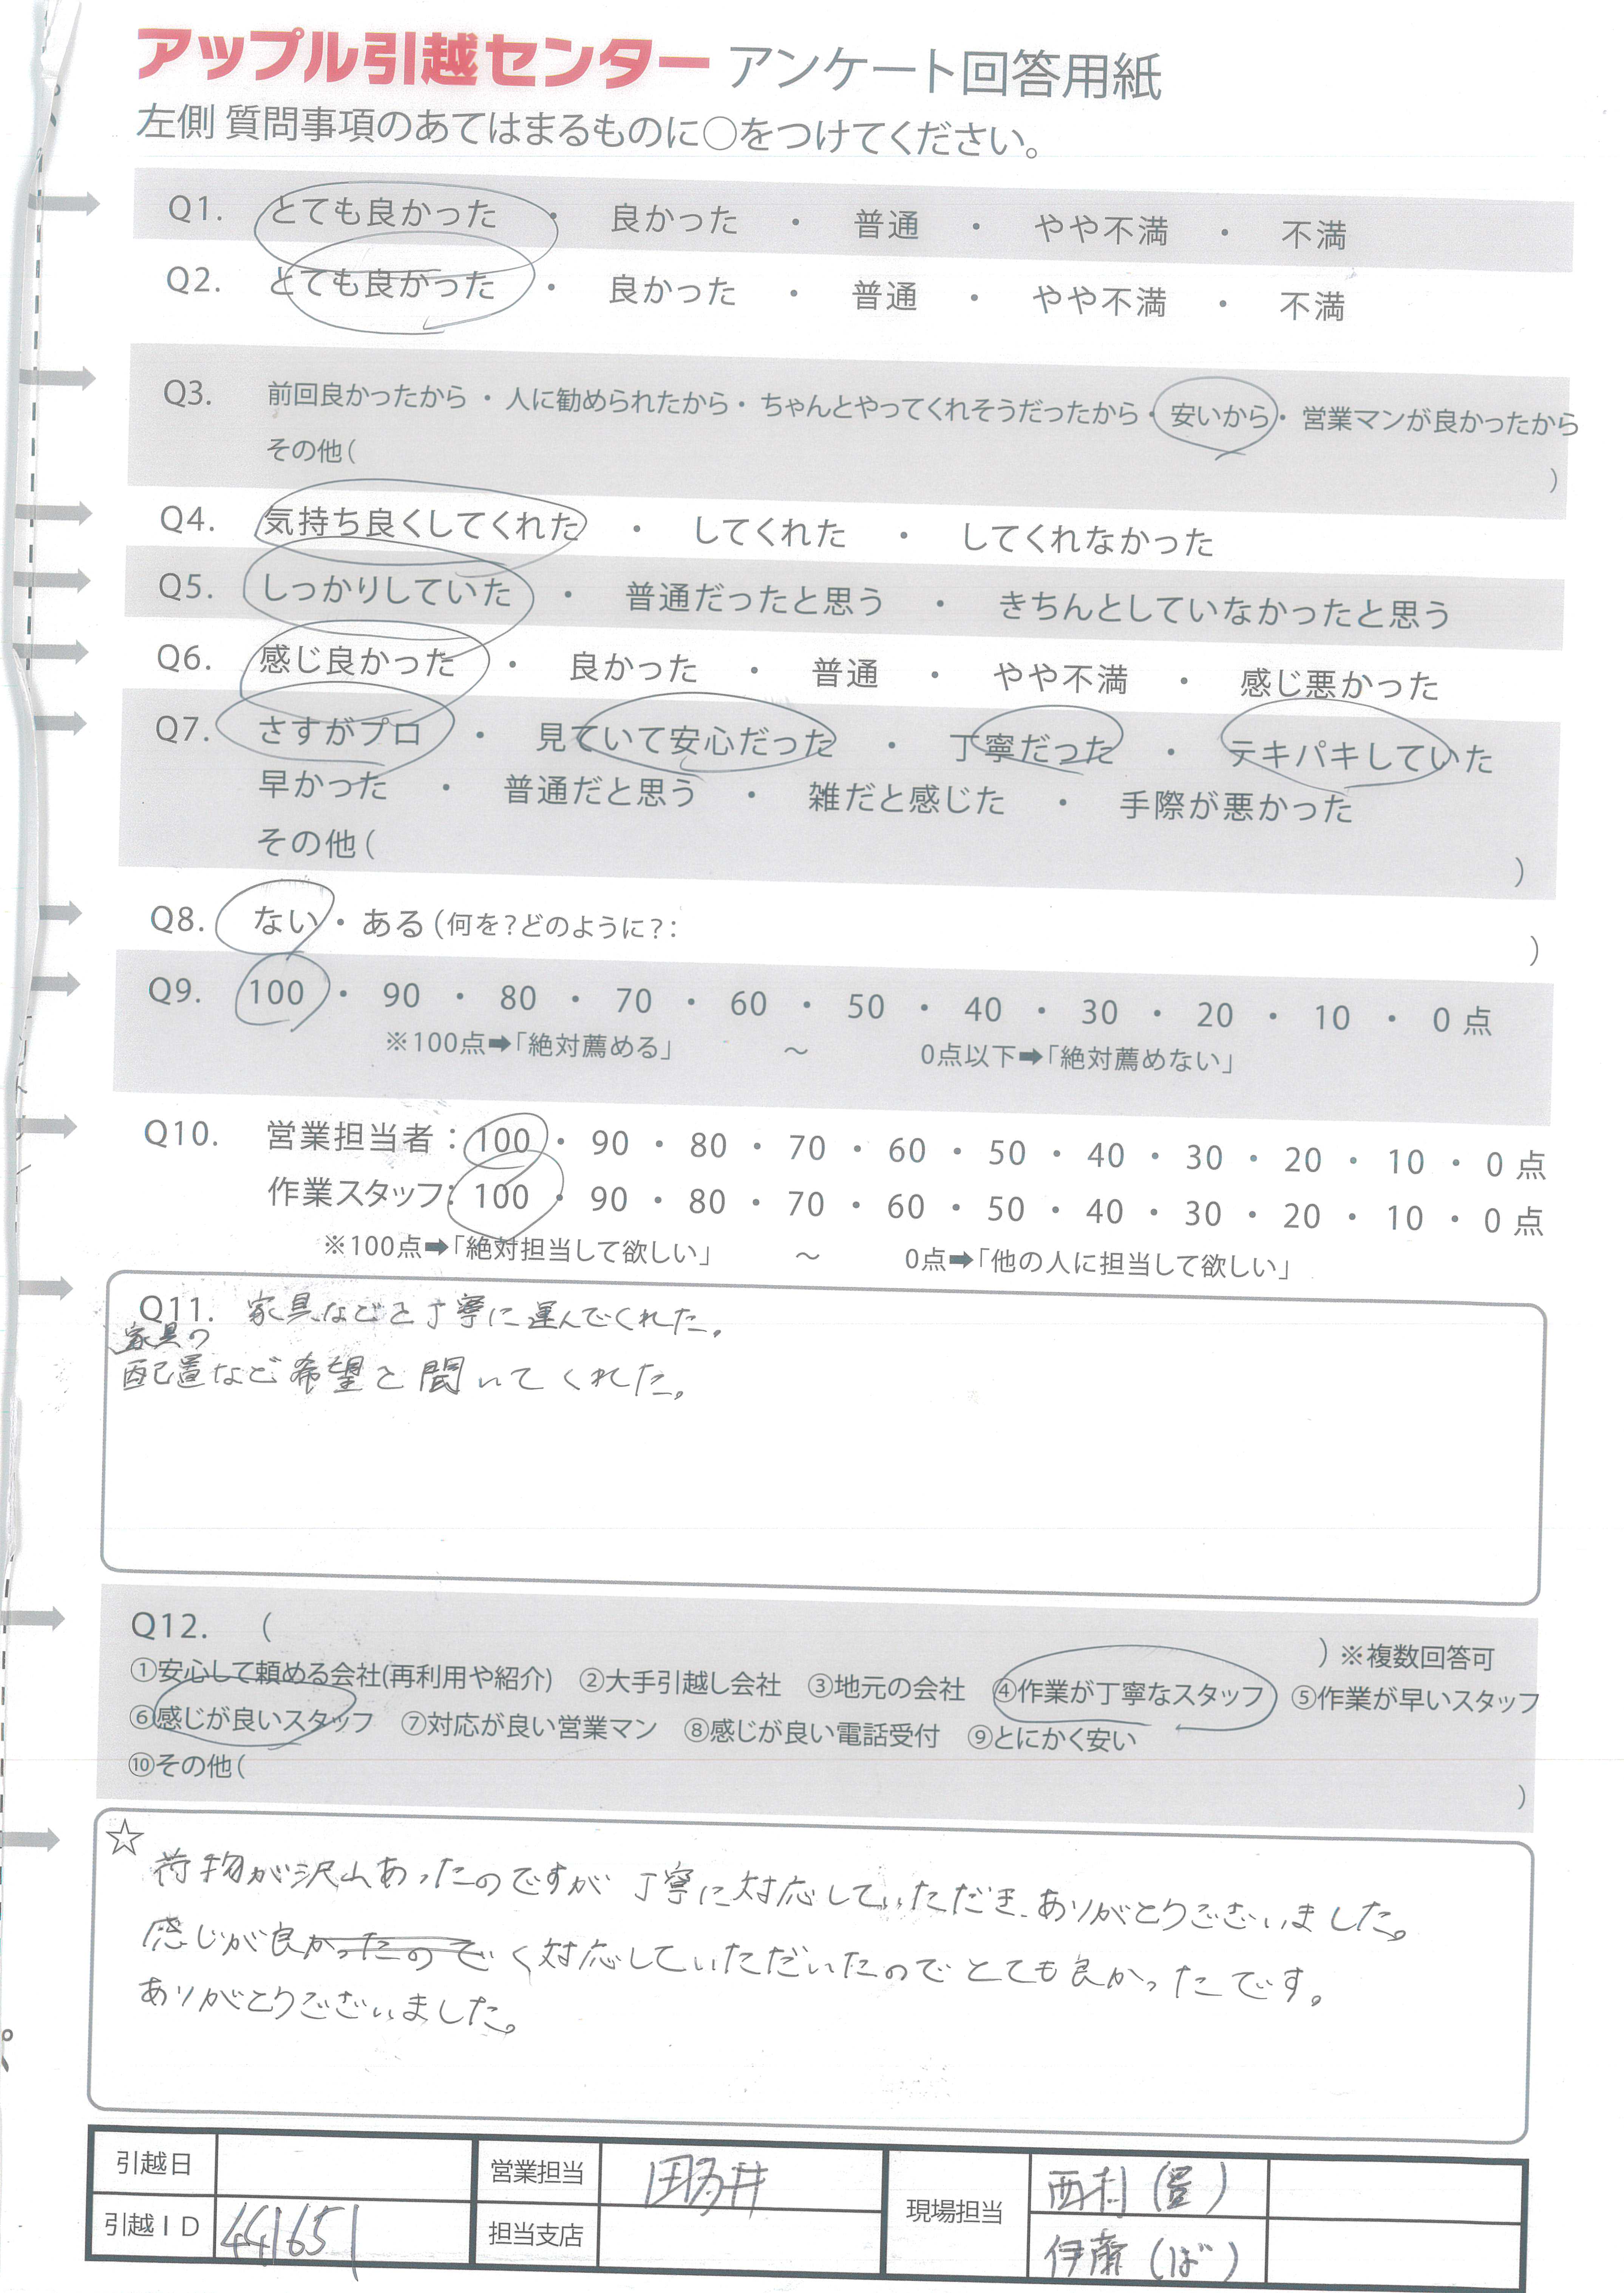 アップル引越センター アンケート回答用紙
左側 質問事項のあてはまるものに○をつけてください。
Q1. とても良かった ・ 良かった ・ 普通 ・ やや不満 ・ 不満
Q2. とても良かった ・ 良かった ・ 普通 ・ やや不満 ・ 不満
Q3. 前回良かったから ・ 人に勧められたから ・ ちゃんとやってくれそうだったから ・ 安いから ・ 営業マンが良かったから
その他( )
Q4. 気持ち良くしてくれた ・ してくれた ・ してくれなかった
Q5. しっかりしていた ・ 普通だったと思う ・ きちんとしていなかったと思う
Q6. 感じ良かった ・ 良かった ・ 普通 ・ やや不満 ・ 感じ悪かった
Q7. さすがプロ ・ 見ていて安心だった ・ 丁寧だった ・ テキパキしていた
早かった ・ 普通だと思う ・ 雑だと感じた ・ 手際が悪かった
その他( )
Q8. ない ・ ある (何を?どのように?: )
Q9. 100 ・ 90 ・ 80 ・ 70 ・ 60 ・ 50 ・ 40 ・ 30 ・ 20 ・ 10 ・ 0 点
※100点➡「絶対薦める」 ～ 0点以下➡「絶対薦めない」
Q10. 営業担当者 : 100 ・ 90 ・ 80 ・ 70 ・ 60 ・ 50 ・ 40 ・ 30 ・ 20 ・ 10 ・ 0 点
作業スタッフ: 100 ・ 90 ・ 80 ・ 70 ・ 60 ・ 50 ・ 40 ・ 30 ・ 20 ・ 10 ・ 0 点
※100点➡「絶対担当して欲しい」 ～ 0点➡「他の人に担当して欲しい」
Q11. 家具などを丁寧に運んでくれた。
家具の
配置など希望を聞いてくれた。
Q12. ( ) ※複数回答可
①安心して頼める会社(再利用や紹介) ②大手引越し会社 ③地元の会社 ④作業が丁寧なスタッフ ⑤作業が早いスタッフ
⑥感じが良いスタッフ ⑦対応が良い営業マン ⑧感じが良い電話受付 ⑨とにかく安い
⑩その他( )
☆
荷物が沢山あったのですが 丁寧に対応していただき、ありがとうございました。
感じが良かったので く対応していただいたのでとても良かったです。
ありがとうございました。
引越日 営業担当 現場担当 西村
引越ＩＤ 441651 担当支店 伊藤 (ば)